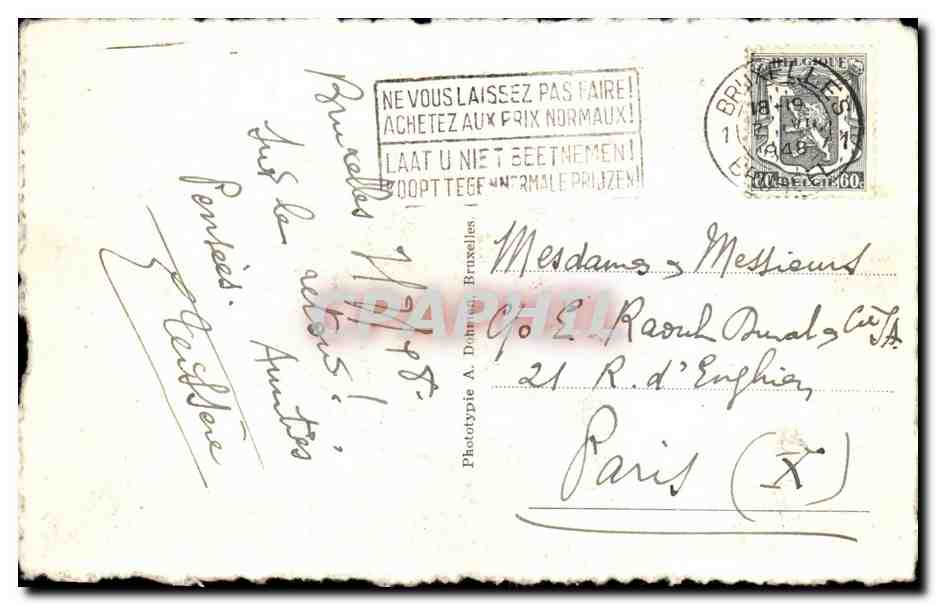 NE VOUS LAISSEZ PAS FAIRE!
ACHETEZ AUX PRIX NORMAUX!
LAAT U NIET BEETNEMEN!
KOOPT TEGEN NORMALE PRIJZEN!
BRUXELLES
18-19
1948
1 1
BELGIQUE
BELGIË 60c
Bruxelles
sur le retour!
Pensées. Amitiés
Phototypie A. Dohmen, Bruxelles.
CPAPHIL
Mesdames, Messieurs
c/o E. Raoul Duval & Cie S/A
21 R. d'Enghien
Paris (X)